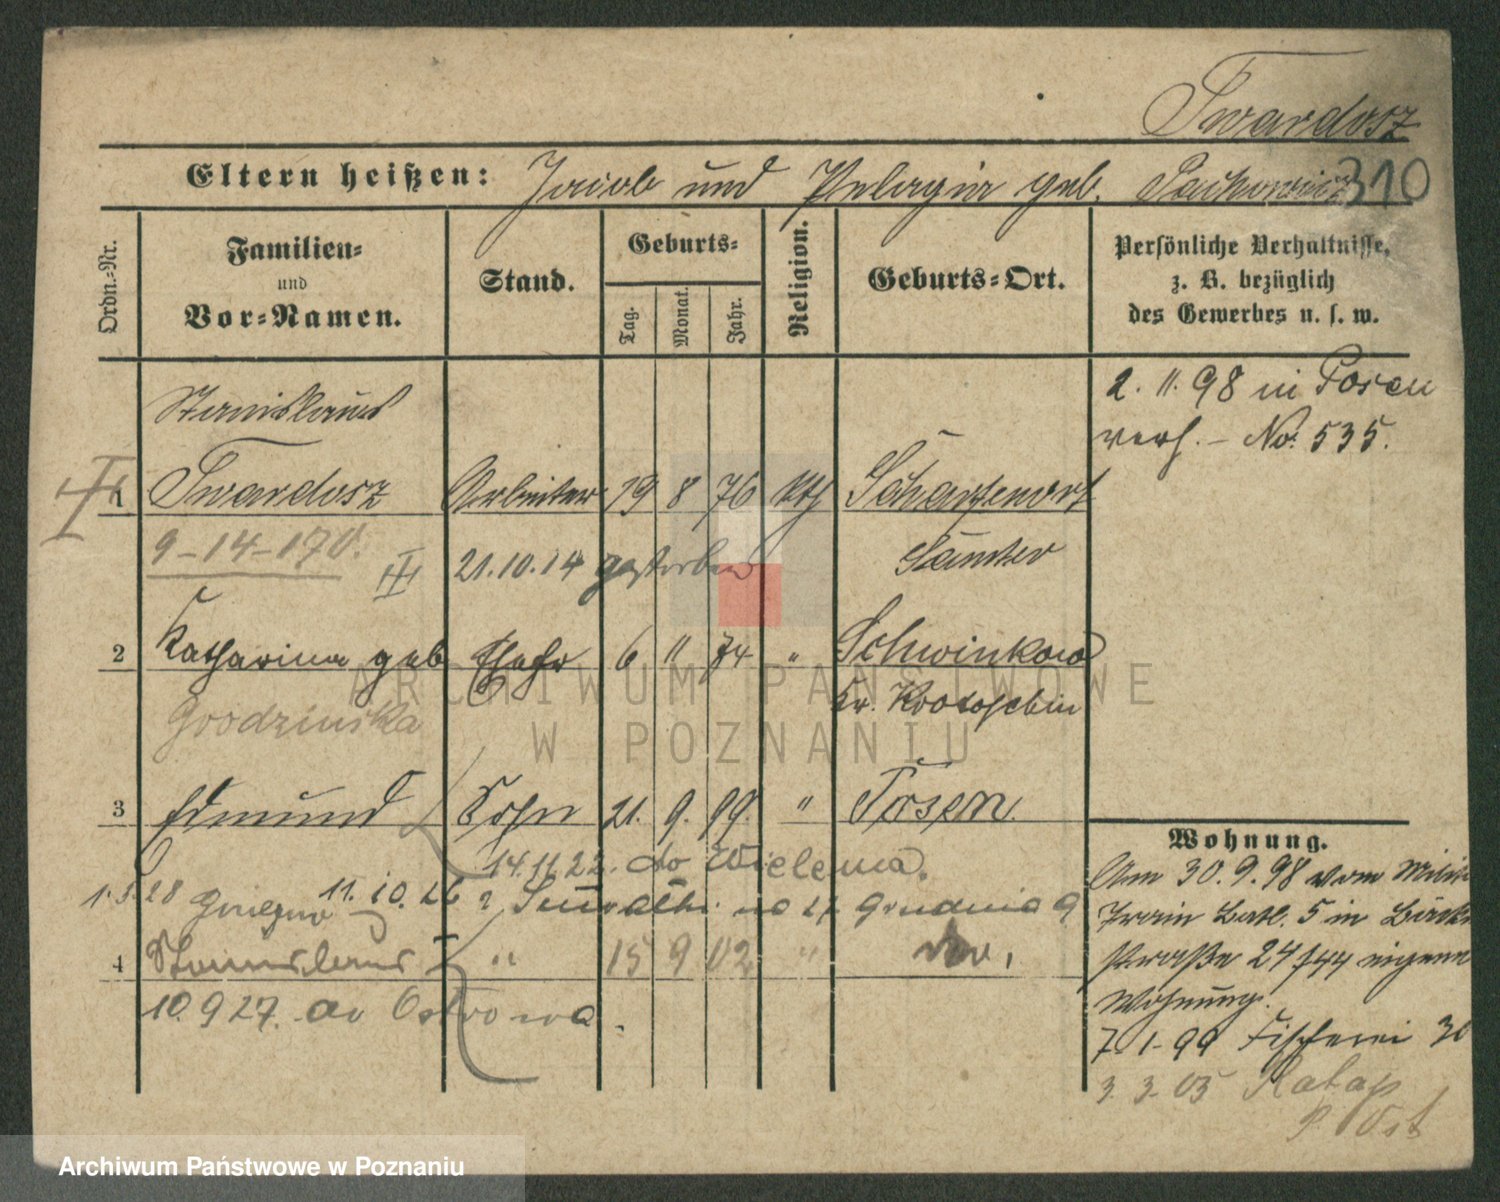 Twardosz
Eltern heißen: Jacob und Pelagia geb.
310
Ordn.-Nr.
Familien-
und
Vor-Namen.
Stand.
Geburts-
Tag.
Monat.
Jahr.
Religion.
Geburts-Ort.
Persönliche Verhältnisse,
z. B. bezüglich
des Gewerbes u. s. w.
2. 11. 98 in Posen
verh. – No: 535.
Stanislaus
1 Twardosz Arbeiter 19 8 76 kth Scharfenort
9-14-170. 21.10.14 gestorben Samter
2 Katharina geb Ehefr 6 11 74 " Schwinkow
Grodzinska Kr. Krotoschin
3 Edmund Sohn 21. 9. 99. " Posen.
14.11.22. do
1.3.28 Gniezno 11.10.26 Grudnia 9
4 Stanislaus " 15 9 02 "
10.9 27. do Ostrowa.
Wohnung.
Am 30.9.98 vom
Train Batl. 5 in
straße 24 eigene
Wohnung.
7.1.99 Fischerei
3. 3. 05 Ratap
ARCHIWUM PAŃSTWOWE
W POZNANIU
Archiwum Państwowe w Poznaniu